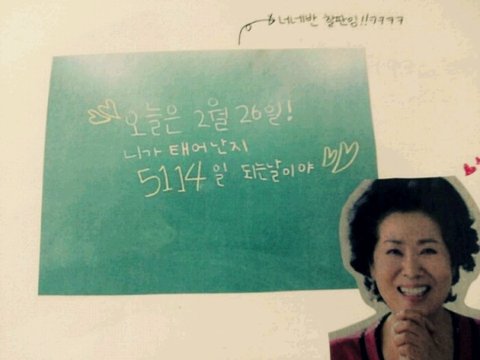 네네반 칠판임!!ㅋㅋㅋㅋ
오늘은 2월 26일!
니가 태어난지
5114일 되는날이야